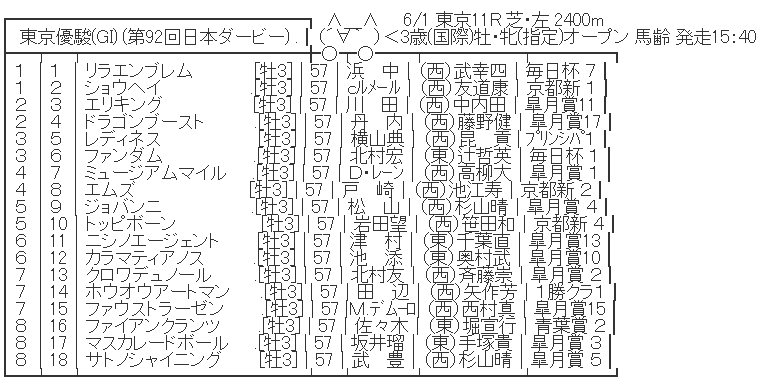 ∧＿∧ 6/1 東京11R 芝・左 2400m
東京優駿(GI) (第92回日本ダービー) . （ ´∀｀）＜3歳(国際)牡・牝(指定)オープン 馬齢 発走15:40
1 | 1 | リラエンブレム [牡3] | 57 | 浜　中 | (西)武幸四 | 毎日杯 7
1 | 2 | ショウヘイ .[牡3] | 57 | c/ﾙﾒｰﾙ | (西)友道康 | 京都新 1
2 | 3 | エリキング .[牡3] | 57 | 川　田 | (西)中内田 | 皐月賞11
2 | 4 | ドラゴンブースト .[牡3] | 57 | 丹　内 | (西)藤野健 | 皐月賞17
3 | 5 | レディネス .[牡3] | 57 | 横山典 | (西)昆　貢 | ﾌﾟﾘﾝｼﾊﾟ1
3 | 6 | ファンダム .[牡3] | 57 | 北村宏 | (東)辻哲英 | 毎日杯 1
4 | 7 | ミュージアムマイル .[牡3] | 57 | D・レーン | (西)高柳大 | 皐月賞 1
4 | 8 | エムズ [牡3] | 57 | 戸　崎 | (西)池江寿 | 京都新 2
5 | 9 | ジョバンニ [牡3] | 57 | 松　山 | (西)杉山晴 | 皐月賞 4
5 | 10 | トッピボーン .[牡3] | 57 | 岩田望 | (西)笹田和 | 京都新 4
6 | 11 | ニシノエージェント .[牡3] | 57 | 津　村 | (東)千葉直 | 皐月賞13
6 | 12 | カラマティアノス .[牡3] | 57 | 池　添 | (東)奥村武 | 皐月賞10
7 | 13 | クロワデュノール .[牡3] | 57 | 北村友 | (西)斉藤崇 | 皐月賞 2
7 | 14 | ホウオウアートマン .[牡3] | 57 | 田　辺 | (西)矢作芳 | 1勝クラ1
7 | 15 | ファウストラーゼン .[牡3] | 57 | M.デムーロ | (西)西村真 | 皐月賞15
8 | 16 | ファイアンクランツ .[牡3] | 57 | 佐々木 | (東)堀宣行 | 青葉賞 2
8 | 17 | マスカレードボール [牡3] | 57 | 坂井瑠 | (東)手塚貴 | 皐月賞 3
8 | 18 | サトノシャイニング [牡3] | 57 | 武　豊 | (西)杉山晴 | 皐月賞 5